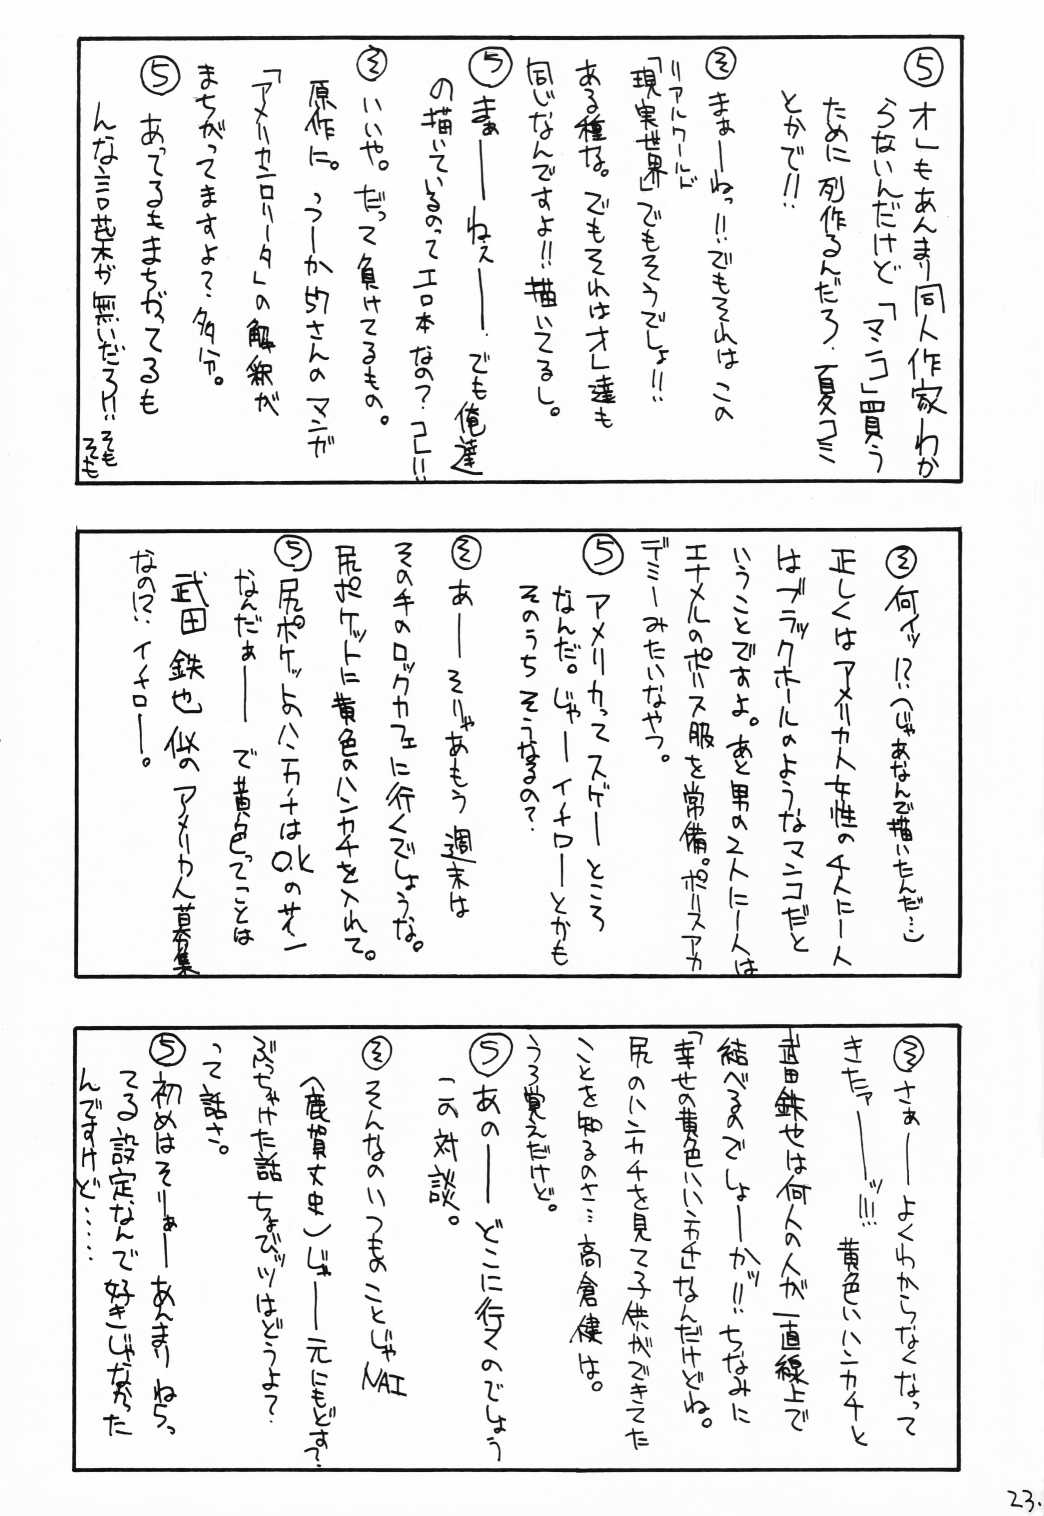 ⑤オレもあんまり同人作家わか
らないんだけど「マンコ」買う
ために列作るんだろ.夏コミ
とかで!!
㋛まぁーねっ!!でもそれはこの
「現実世界」でもそうでしょ!!
リアルワールド
ある種な。でもそれはオレ達も
同じなんですよ!!描いてるし。
⑤まぁーーねぇーー.でも俺達
の描いているのってエロ本なの?コレ!!
㋛いいや。だって負けてるもの。
原作に。つーか55さんのマンガ
「アメリカンロリータ」の解釈が
まちがってますよ?.多分。
⑤あってるもまちがってるも
んな言葉が無いだろ!!
そもそも
㋛何ィッ!?(じゃあなんで描いたんだ…)
正しくはアメリカ人女性の千人に一人
はブラックホールのようなマンコだと
いうことですよ。あと男の2人に一人は
エナメルのポリス服を常備。ポリスアカ
デミーみたいなやつ。
⑤アメリカってスゲーところ
なんだ。じゃーイチローとかも
そのうちそうなるの?
㋛あーーそりゃあもう週末は
その手のロックカフェに行くでしょうな。
尻ポケットに黄色のハンカチを入れて。
⑤尻ポケットのハンカチはO.Kのサイン
なんだぁーーで黄色ってことは
武田鉄也似のアメリカ人募集
なの!?イチローー。
㋛さぁーーよくわからなくなって
きたァーーーッ!!!黄色いハンカチと
武田鉄也は何人の人が一直線上で
結べるのでしょーかッ!!ちなみに
「幸せの黄色いハンカチ」なんだけどね。
尻のハンカチを見て子供ができてた
ことを知るのさ…高倉健は。
うろ覚えだけど。
⑤あのーーどこに行くのでしょう
この対談。
㋛そんなのいつものことじゃNAI
(鹿賀丈史)じゃーー元にもどす?
ぶっちゃけた話ちょびッツはどうよ?
って話さ。
⑤初めはそりぁーあんまりねらっ
てる設定なんで好きじゃなかった
んですけど……
23.